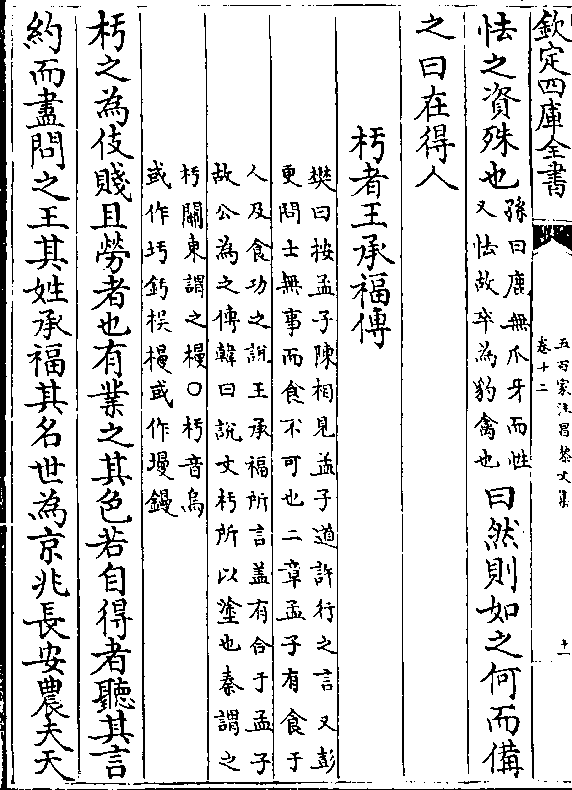 欽定四庫全書
五百家注昌黎文集
卷十二
十一
怯之資殊也
孫曰鹿無爪牙而性
又怯故卒為豹禽也
曰然則如之何而備
之曰在得人
杇者王承福傳
樊曰按孟子陳相見孟子道許行之言又彭
更問士無事而食不可也二章孟子有食于
人及食功之說王承福所言盖有合于孟子
故公為之傳韓曰說文杇所以塗也秦謂之
杇關東謂之槾〇杇音烏
或作圬釫椇槾或作墁鏝
杇之為伎賤且勞者也有業之其色若自得者聽其言
約而盡問之王其姓承福其名世為京兆長安農夫天